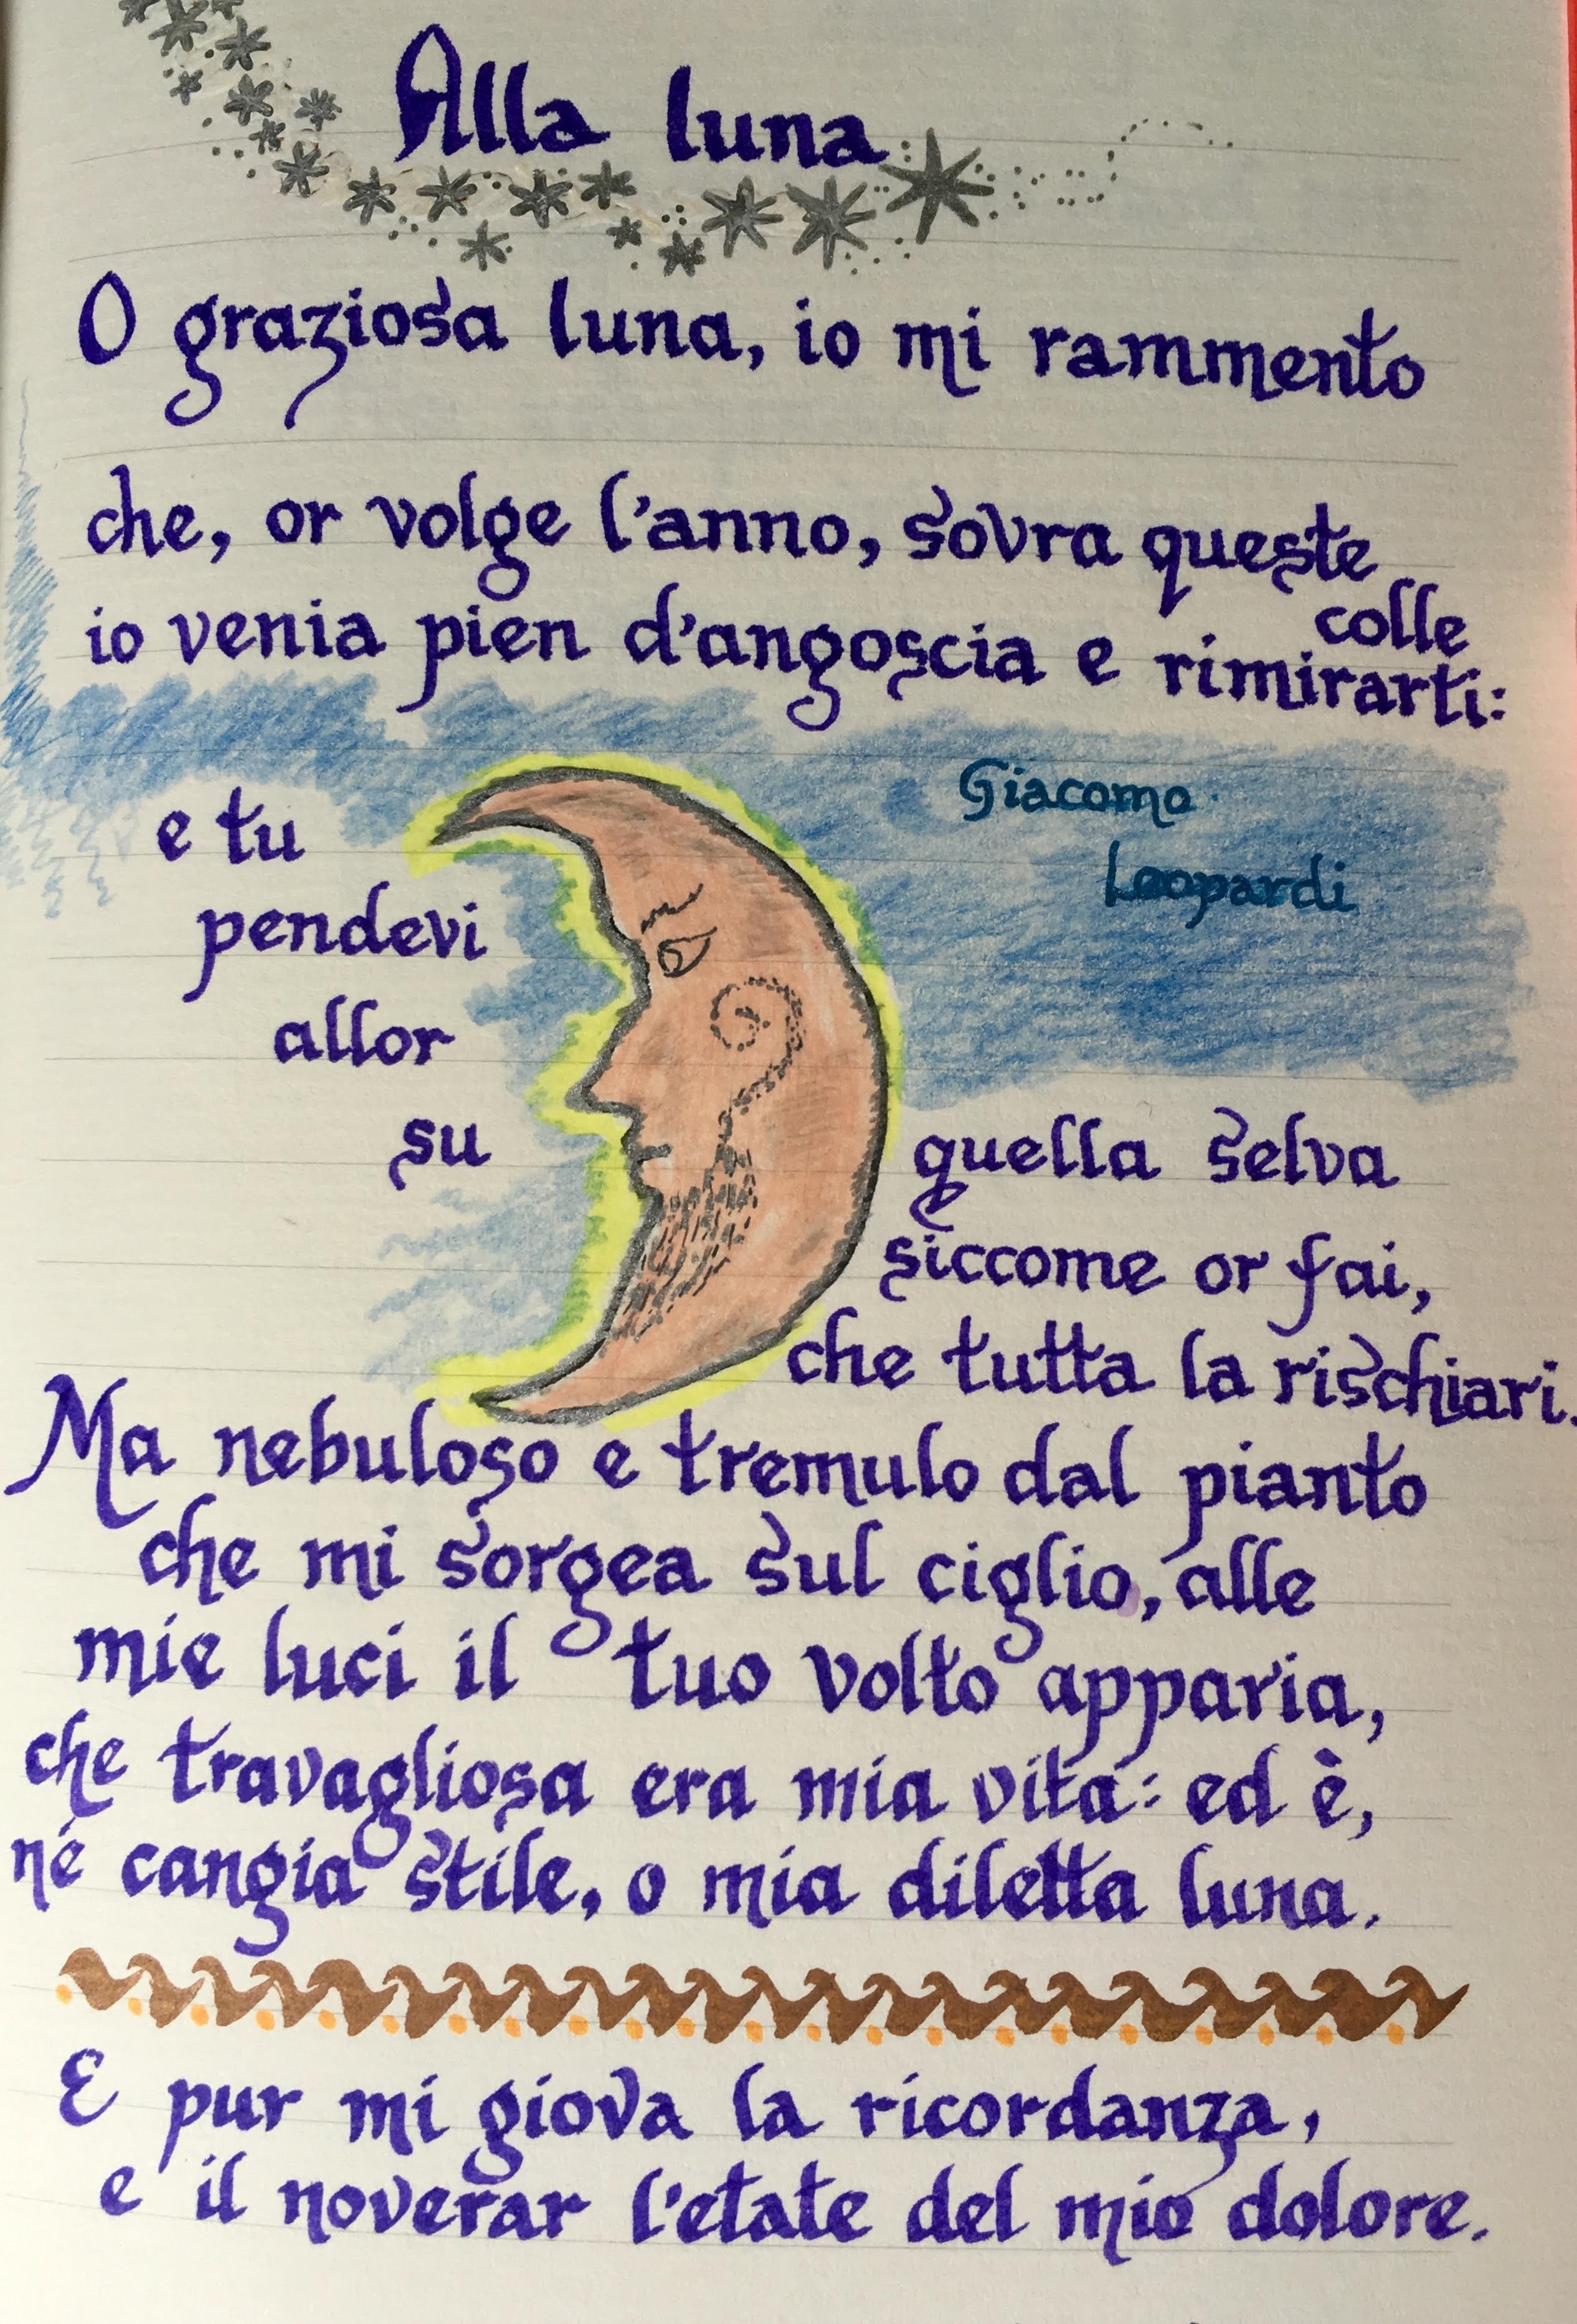 Alla luna
O graziosa luna, io mi rammento
che, or volge l'anno, sovra queste
colle
io venia pien d'angoscia e rimirarti:
Giacomo
Leopardi
e tu
pendevi
allor
su quella selva
siccome or fai,
che tutta la rischiari.
Ma nebuloso e tremulo dal pianto
che mi sorgea sul ciglio, alle
mie luci il tuo volto apparia,
che travagliosa era mia vita: ed è,
né cangia stile, o mia diletta luna.
E pur mi giova la ricordanza,
e il noverar l'etate del mio dolore.